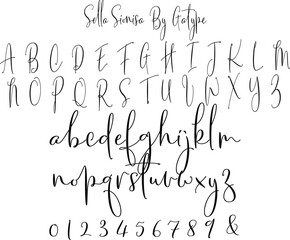 Sella Sionisa By Gatype
A B C D E F G H I J K L M
N O P Q R S T U V W X Y Z
abcdefghijklm
nopqrstuvwxyz
0 1 2 3 4 5 6 7 8 9 &